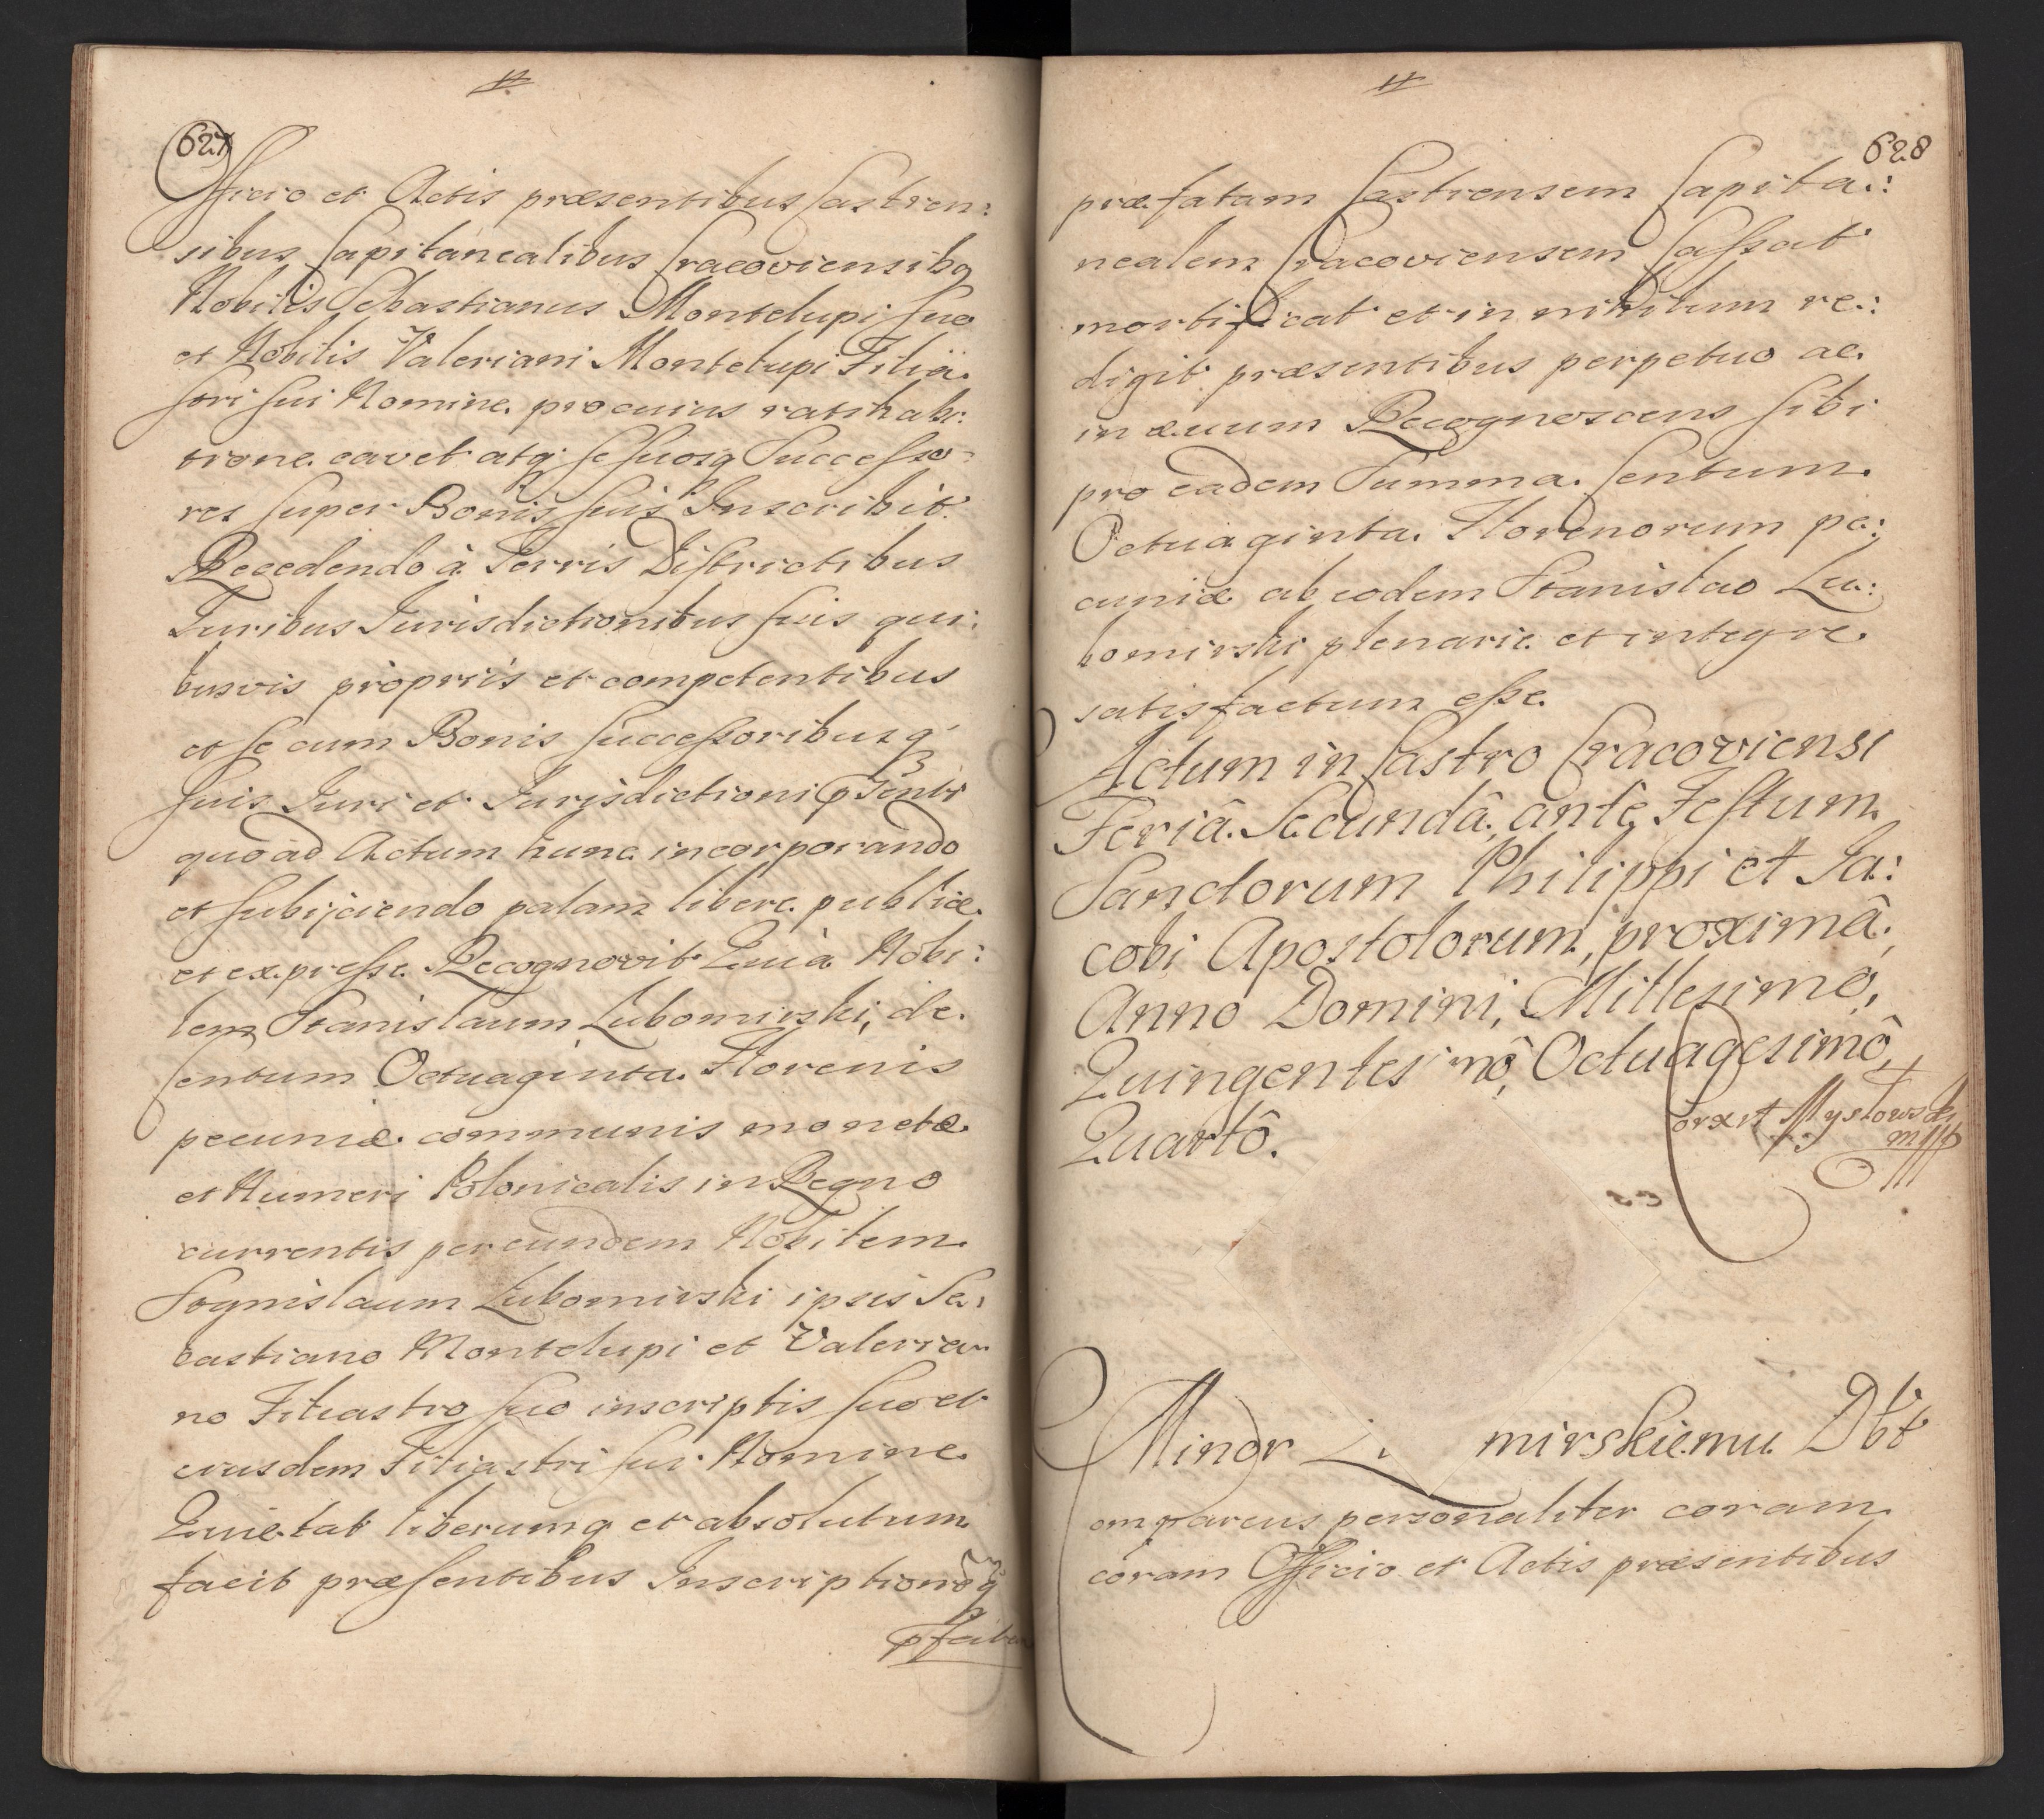 627
Officio et Actis præsentibus Castren:
sibus Capitanealibus Cracoviensibq
Nobilis Sebastianus Montelupi suo
et Nobilis Valeriani Montelupi Filia.
stri sui Nomine pro cuius ratihabi:
tione cavet atq se suosq Successo:
res super Bonis suis Inscribit.
Recedendo à Terris Districtibus
Iuribus Iurisdictionibus suis qui:
busvis propriis et competentibus
et se cum Bonis successoribusq
suis Iuri et Iurisdictioni pnti
quo ad Actum hunc incorporando
et subijciendo palam libere publice
et expresse Recognovit Quia Nobi:
lem Stanislaum Lubomirski, de
Centum Octuaginta Florenis
pecuniæ communis monetæ
et Numeri Polonicalis in Regno
currentis per eundem Nobilem
Stanislaum Lubomirski ipsis Se:
bastiano Montelupi et Valeria:
no Filiastro suo inscriptis suo et
eiusdem Filiastri sui Nomine
Quietat liberumq et absolutum
facit præsentibus Inscriptionēq
628
præfatam Castrensem Capita:
nealem Cracoviensem Cassat
mortificat et in nihilum re:
digit præsentibus perpetuo ac
in ævum Recognoscens sibi
pro eadem Summa Centum
Octuaginta Florenorum pe:
cuniæ ab eodem Stanislao Lu:
bomirski plenarie et integre
satisfactum esse.
Actum in Castro Cracoviensi
Feriâ Secundâ, ante Festum
Sanctorum Philippi et Ja:
cobi Apostolorum, proximâ,
Anno Domini, Millesimô,
Quingentesimô, Octuagesimô,
Quartô.
Corexit Mysłowski
mpp
Minor L mirskiemu Dbt
omparens personaliter coram
coram Officio et Actis præsentibus